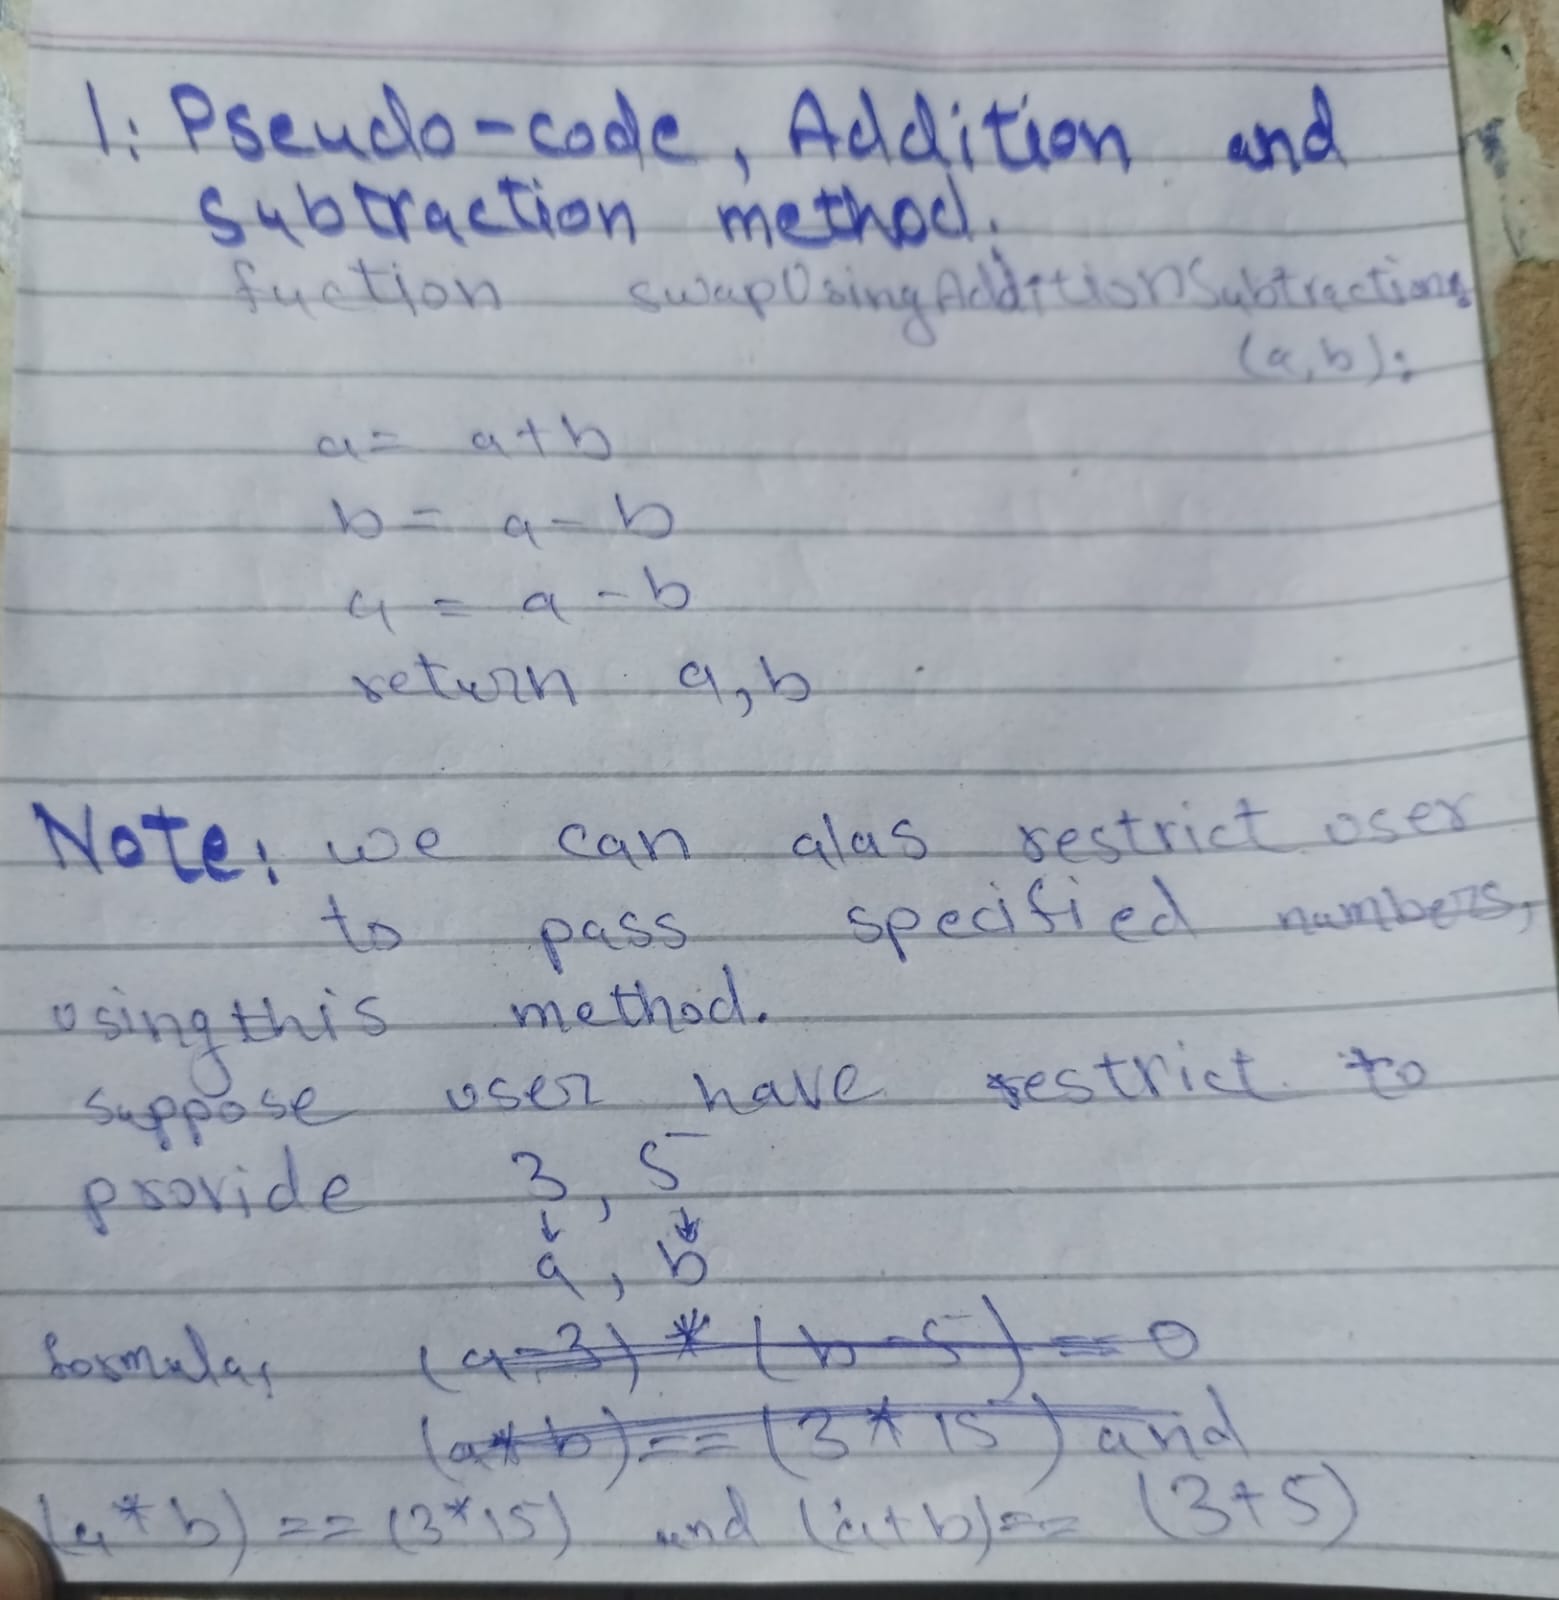 1: Pseudo-code, Addition and
subtraction method.
fuction swapUsingAdditionSubtraction
(a,b):
a = a+b
b = a-b
a = a-b
return a,b
Note: we can alas restrict user
to pass specified numbers,
using this method.
suppose user have restrict to
provide 3, 5
a, b
formula, (a-3) * (b-5) == 0
(a*b) == (3*15) and
(a*b) == (3*15) and (a+b) == (3+5)